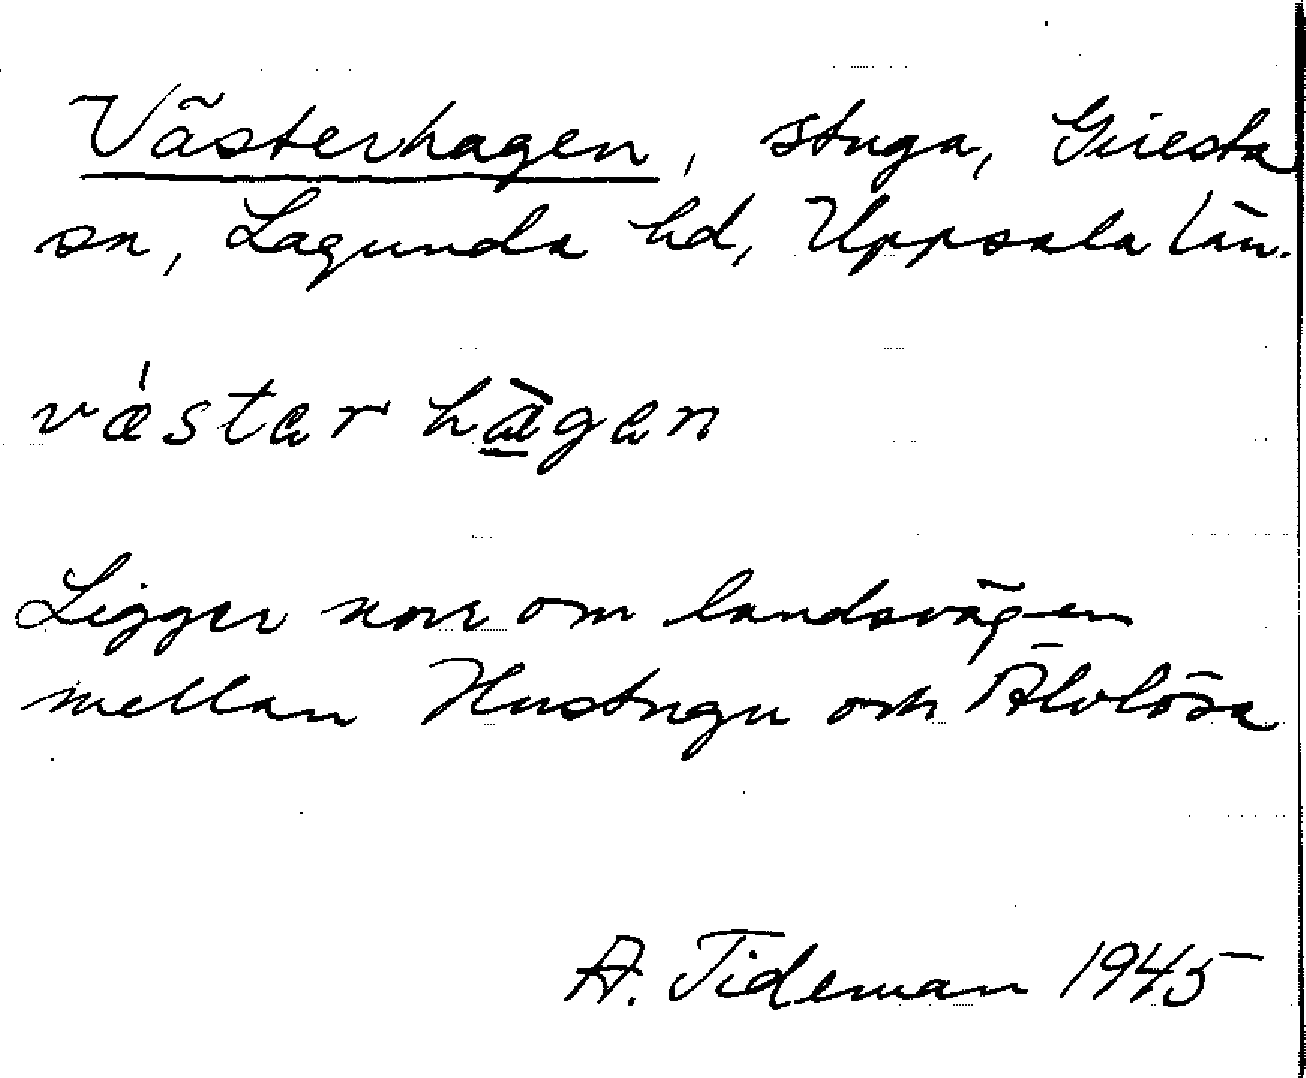 Västerhagen, stuga, Giresta
sn, Lagunda hd, Uppsala län.
västar hàgan
Ligger norr om landsvägen
mellan Hustugu och Älvlösa
A. Tideman 1945